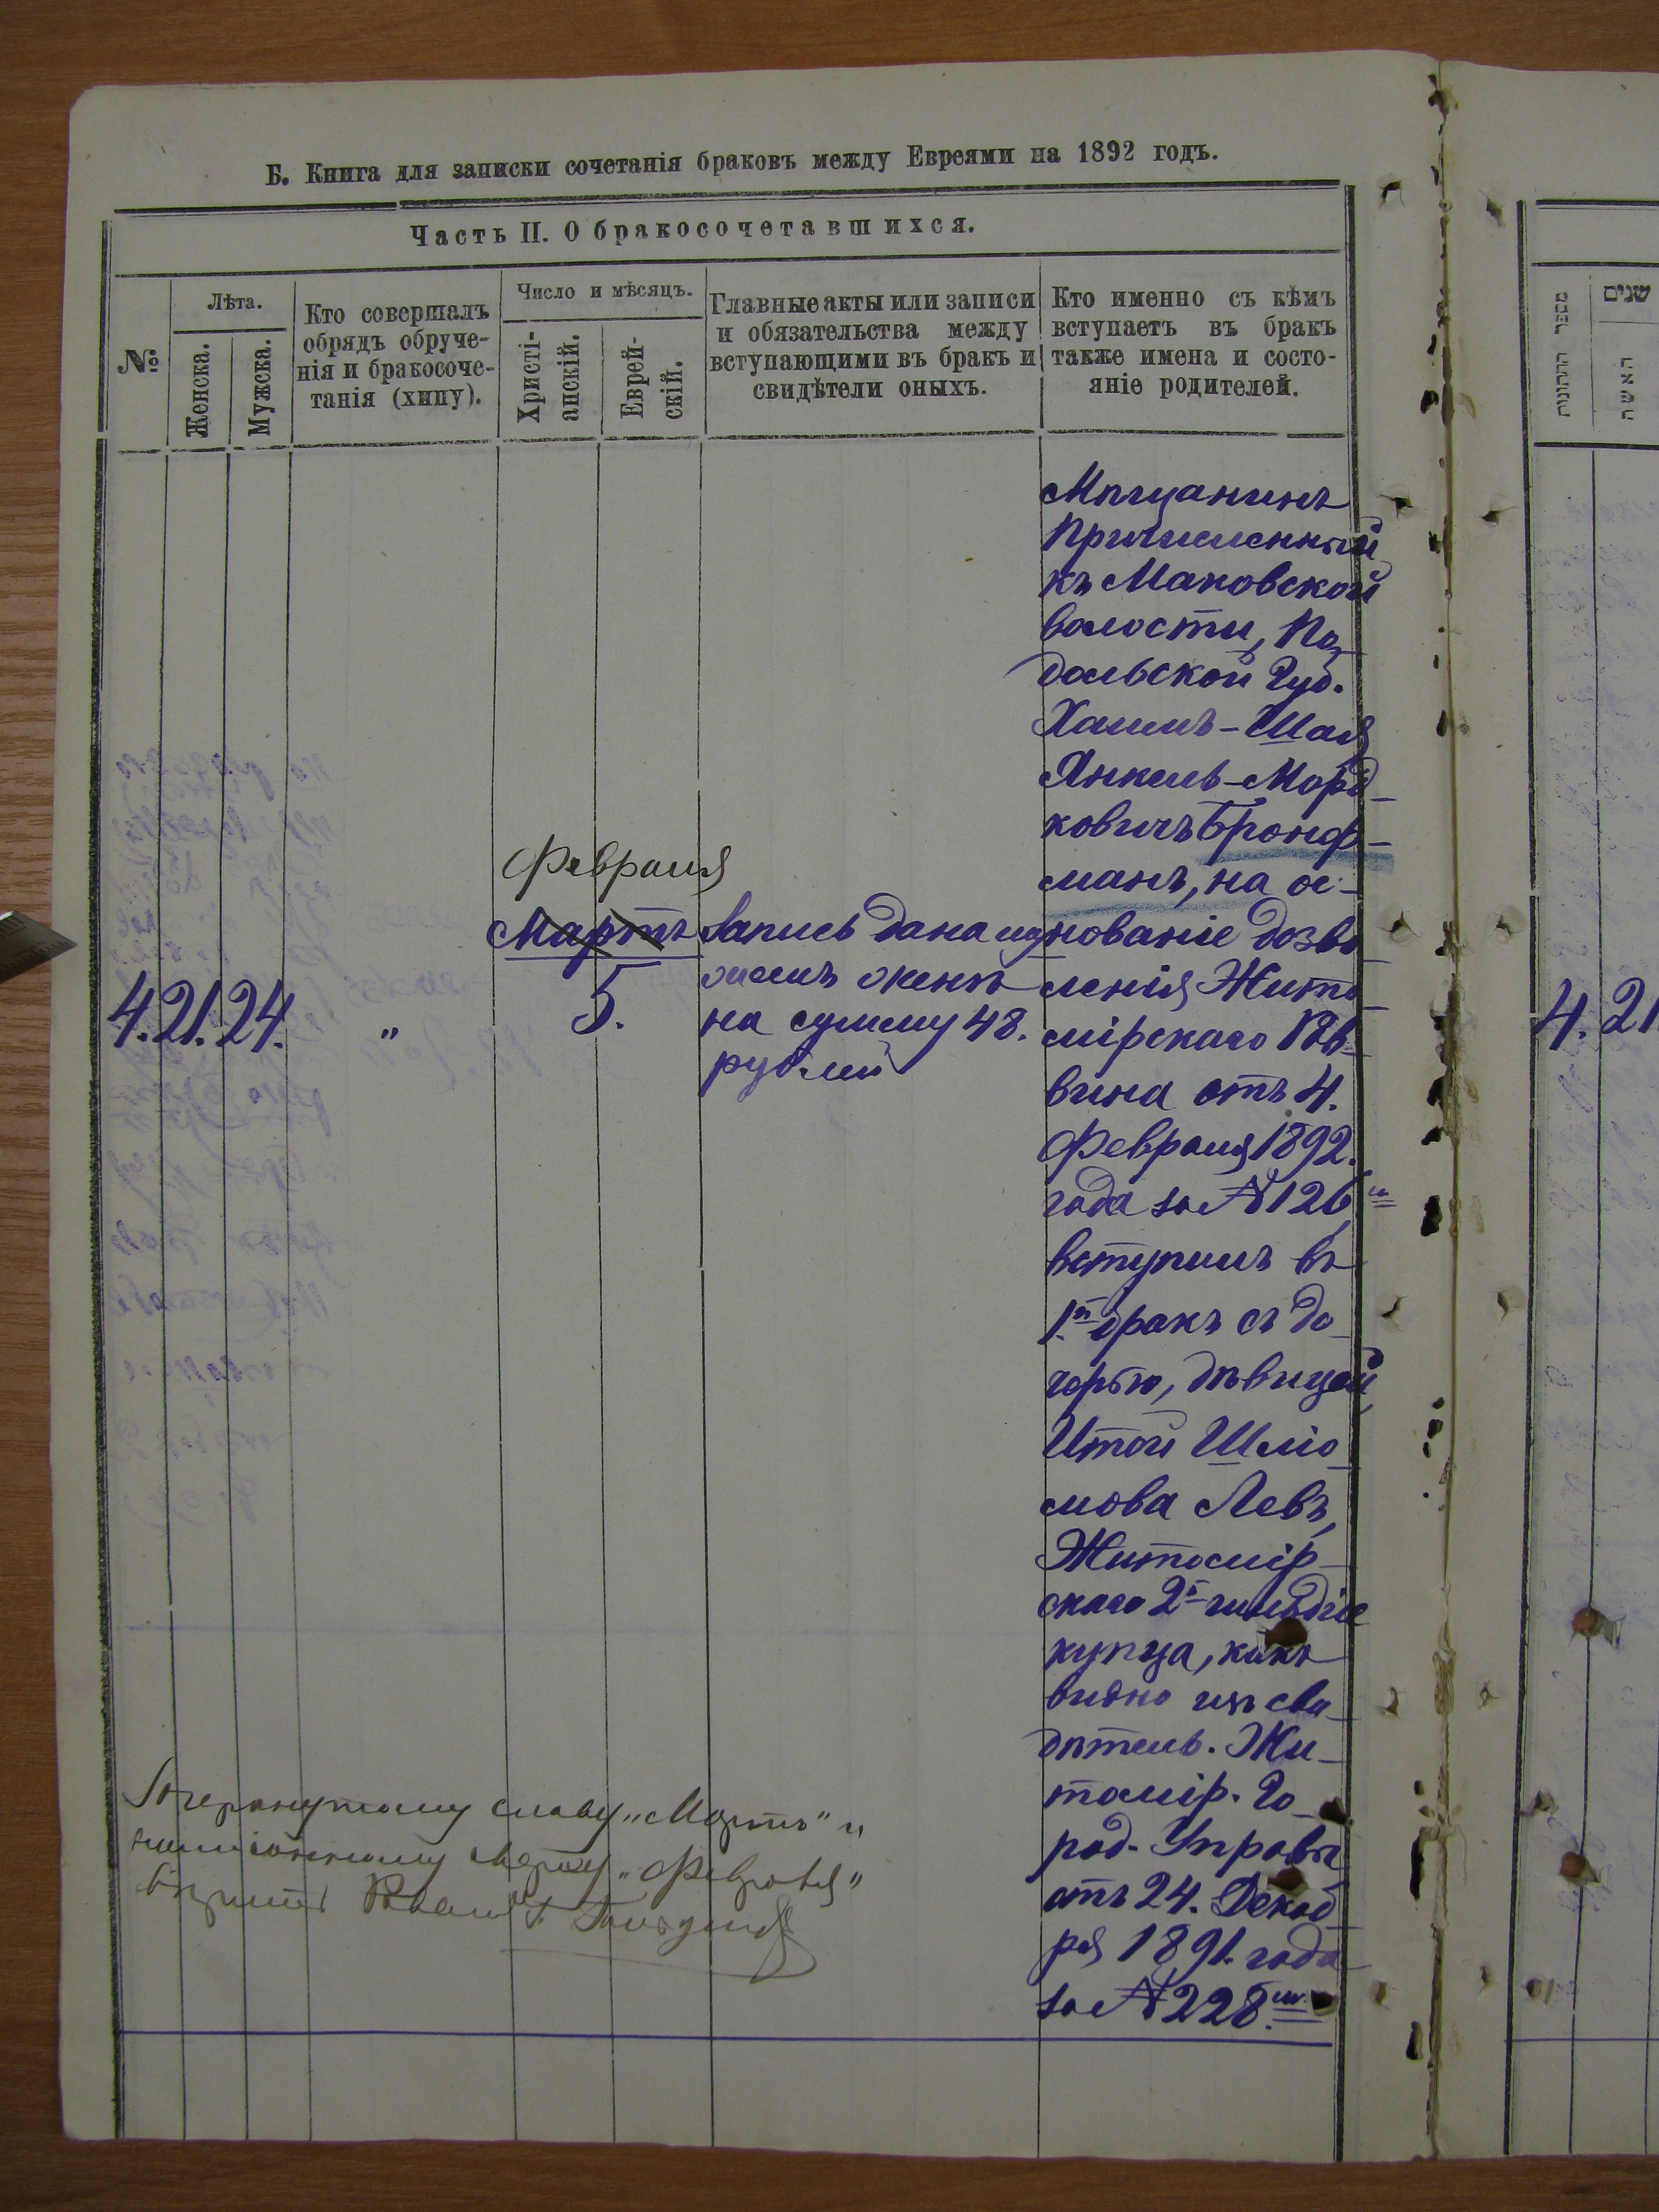 Б. Книга для записки сочетанія браковъ между Евреями на 1892 годъ.
Часть II. О бракосочетавшихся.
№:
Лѣта.
Женска.
Мужска.
Кто совершалъ
обрядъ обруче-
нія и бракосоче-
танія (хипу).
Число и мѣсяцъ.
Христі-
анскій.
Еврей-
скій.
Главные акты или записи
и обязательства между
вступающими въ бракъ и
свидѣтели оныхъ.
Кто именно съ кѣмъ
вступаетъ въ бракъ
также имена и состо-
яніе родителей.
4. 21. 24.
„
Февраля
Мартъ
5.
Запись дана му
жемъ женѣ
на сумму 48.
рублей
Мѣщанинъ
Причисленный
къ Маковской
волости, По-
дольской Губ.
Хаимъ-Шая
Янкель-Морд-
ковичъ Бронф-
манъ, на ос-
нованіе дозво
ленія Жито-
мірскаго Рав-
вина отъ 4.
Февраля 1892.
года за № 126,
вступилъ въ
1й бракъ съ до-
черью, дѣвицей
Итой Шліо-
мова Левъ,
Житомір-
скаго 2й гильдіи
купца, какъ
видно изъ сви-
дѣтель. Жи-
томір. Го-
род. Управы
отъ 24. Декаб
ря 1891. года
за № 228.
Зачеркнутому слову „Мартъ" и
написанному сверху „Февраля"
вѣрить Раввинъ
מספר החתונות
שנים
האשה
4. 21